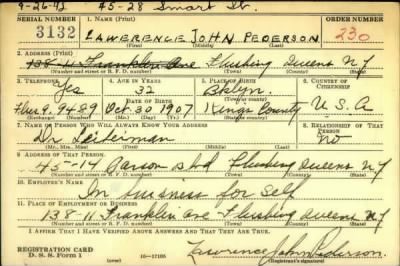 9-26-42 45-28 Smart St.
SERIAL NUMBER 1. NAME (Print) ORDER NUMBER
3132 LAWERENCE JOHN PEDERSON 230
(First) (Middle) (Last)
2. ADDRESS (Print)
138-11 Franklin Ave Flushing Queens N Y
(Number and street or R. F. D. number) (Town) (County) (State)
3. TELEPHONE 4. AGE IN YEARS 5. PLACE OF BIRTH 6. COUNTRY OF CITIZENSHIP
Yes 32 Bklyn.
DATE OF BIRTH (Town or county)
9.9489 Oct. 30 1907 Kings County U.S.A
(Exchange) (Number) (Mo.) (Day) (Yr.) (State or country)
7. NAME OF PERSON WHO WILL ALWAYS KNOW YOUR ADDRESS 8. RELATIONSHIP OF THAT PERSON
Dr. No
(Mr., Mrs., Miss) (First) (Middle) (Last)
9. ADDRESS OF THAT PERSON
45-14 Parson blvd Flushing Queens N Y
(Number and street or R. F. D. number) (Town) (County) (State)
10. EMPLOYER'S NAME
In business for self
11. PLACE OF EMPLOYMENT OR BUSINESS
138-11 Franklin ave Flushing Queens N Y
(Number and street or R. F. D. number) (Town) (County) (State)
I AFFIRM THAT I HAVE VERIFIED ABOVE ANSWERS AND THAT THEY ARE TRUE.
REGISTRATION CARD
D. S. S. FORM 1 16-17105 Lawrence John Pederson
(Registrant's signature)